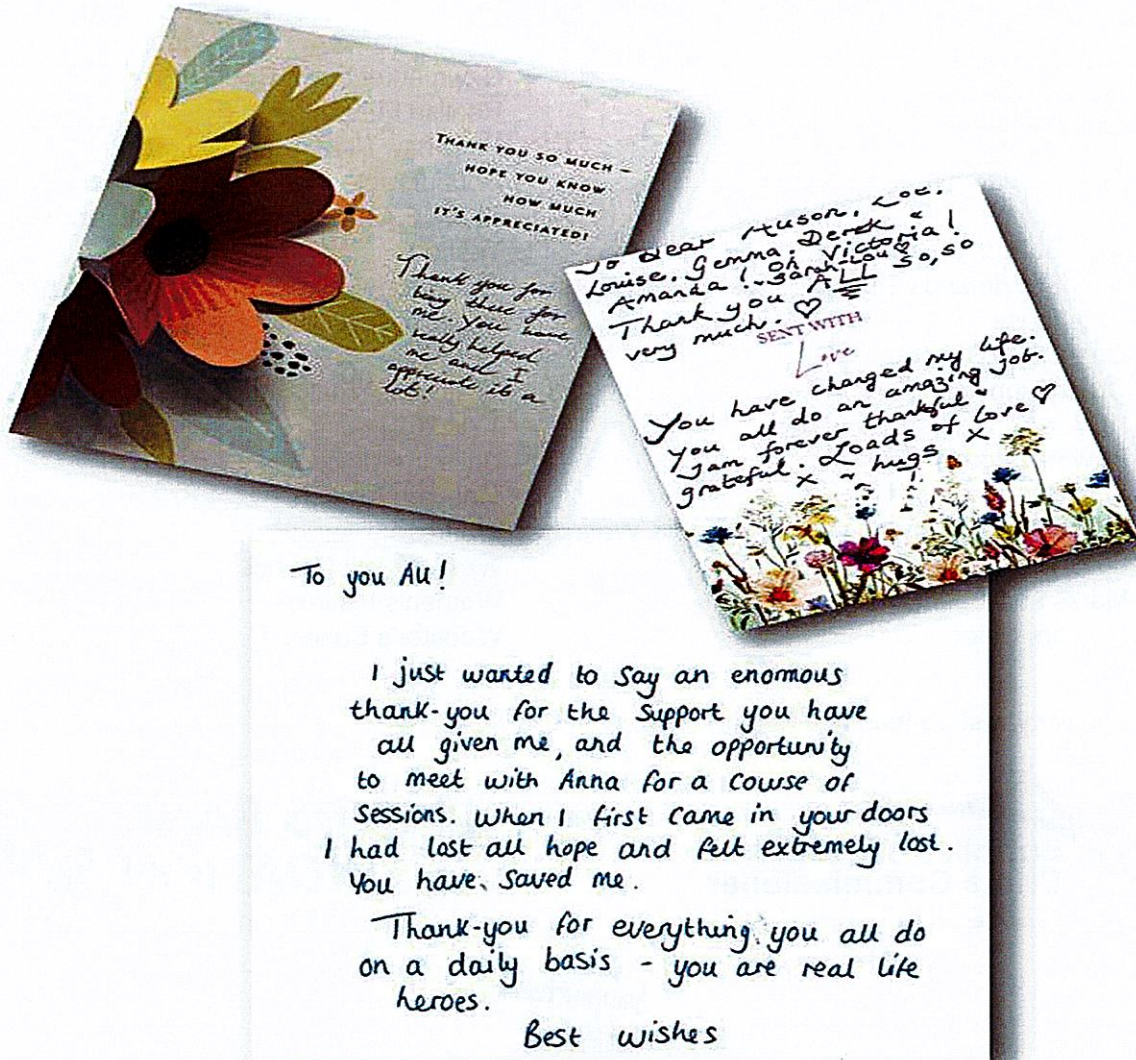 THANK YOU SO MUCH –
HOPE YOU KNOW
HOW MUCH
IT'S APPRECIATED!
Thank you for
being there for
me. You have
really helped
me and I
appreciate it a
lot!
To Dear Zoe,
Louise, Gemma, Derek &
Amanda! Oh Victoria!
Sarah Lou
Thank you ALL so, so
very much. ♡
SENT WITH
Love
You have changed my life.
You all do an amazing job.
I am forever thankful &
grateful. Loads of Love ♡
x hugs x
To you All!
I just wanted to say an enormous
thank-you for the support you have
all given me, and the opportunity
to meet with Anna for a course of
sessions. When I first came in your doors
I had lost all hope and felt extremely lost.
You have saved me.
Thank-you for everything you all do
on a daily basis - you are real life
heroes.
Best wishes